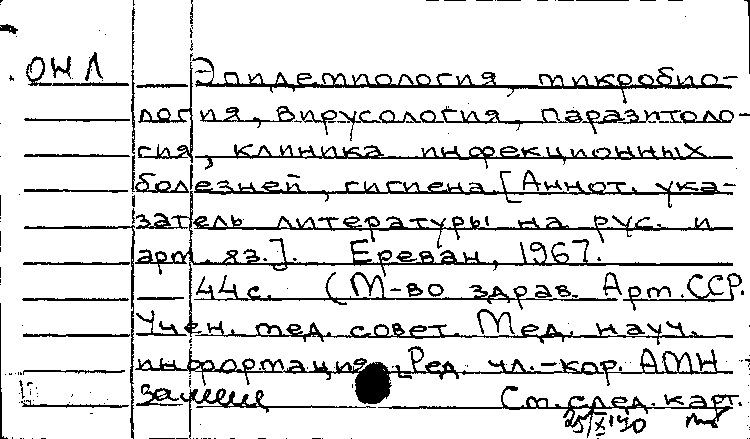 ОНЛ Эпидемиология, микробио-
логия, вирусология, паразитоло-
гия, клиника инфекционных
болезней, гигиена. [Аннот. ука-
затель литературы на рус. и
арм. яз.]. Ереван, 1967.
44с. (М-во здрав. Арм. ССР.
Учен. мед. совет. Мед. науч.
информация. Ред. чл.-кор. АМН
См. след. карт.